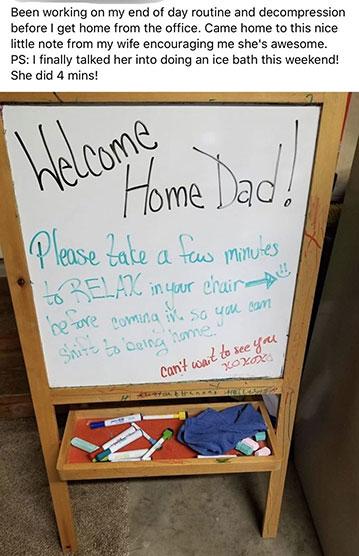 Been working on my end of day routine and decompression
before I get home from the office. Came home to this nice
little note from my wife encouraging me she's awesome.
PS: I finally talked her into doing an ice bath this weekend!
She did 4 mins!
Welcome
Home Dad!
Please take a few minutes
to RELAX in your chair
before coming in so you can
shift to being home.
can't wait to see you
xoxoxo